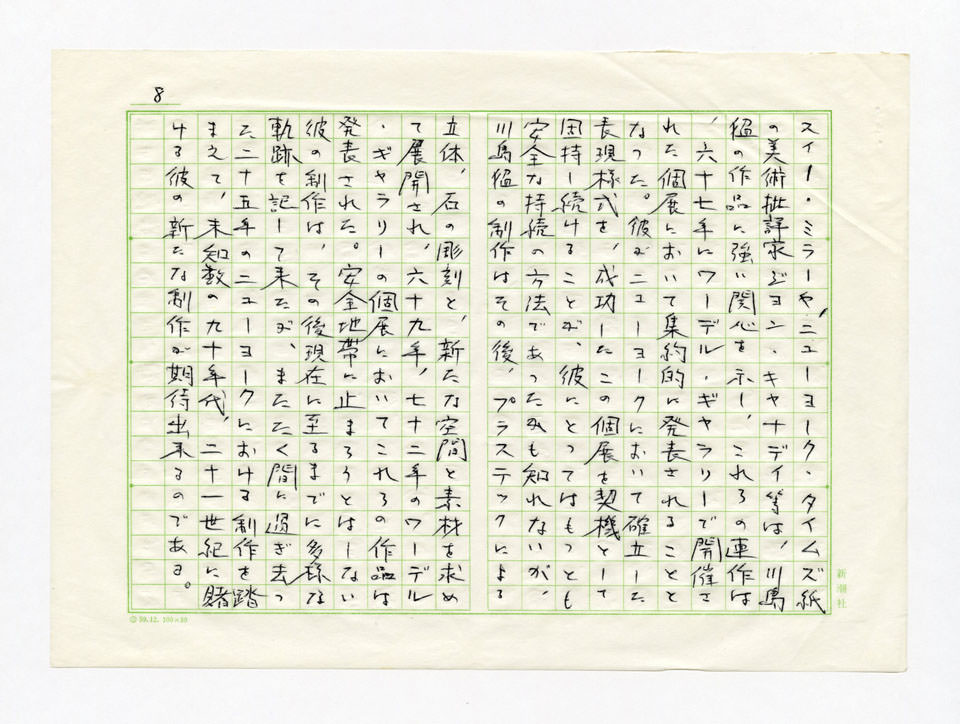 8
スィー・ミラーや、ニューヨーク・タイムズ紙
の美術批評家ジョン・キャナディ等は、川島
猛の作品に強い関心を示し、これらの連作は
、六十七年にワーデル・ギャラリーで開催さ
れた個展において集約的に発表されることと
なった。彼がニューヨークにおいて確立した
表現様式を、成功したこの個展を契機として
固持し続けることが、彼にとってはもっとも
安全な持続の方法であったかも知れないが、
川島猛の制作はその後、プラステックによる
立体、石の彫刻と、新たな空間と素材を求め
て展開され、六十九年、七十二年のワーデル
・ギャラリーの個展においてこれらの作品は
発表された。安全地帯に止まろうとはしない
彼の制作は、その後現在に至るまでに多様な
軌跡を記して来たが、またたく間に過ぎ去っ
た二十五年のニューヨークにおける制作を踏
まえて、未知数の九十年代、二十一世紀に賭
ける彼の新たな制作が期待出来るのである。
新潮社
59.12. 100×80